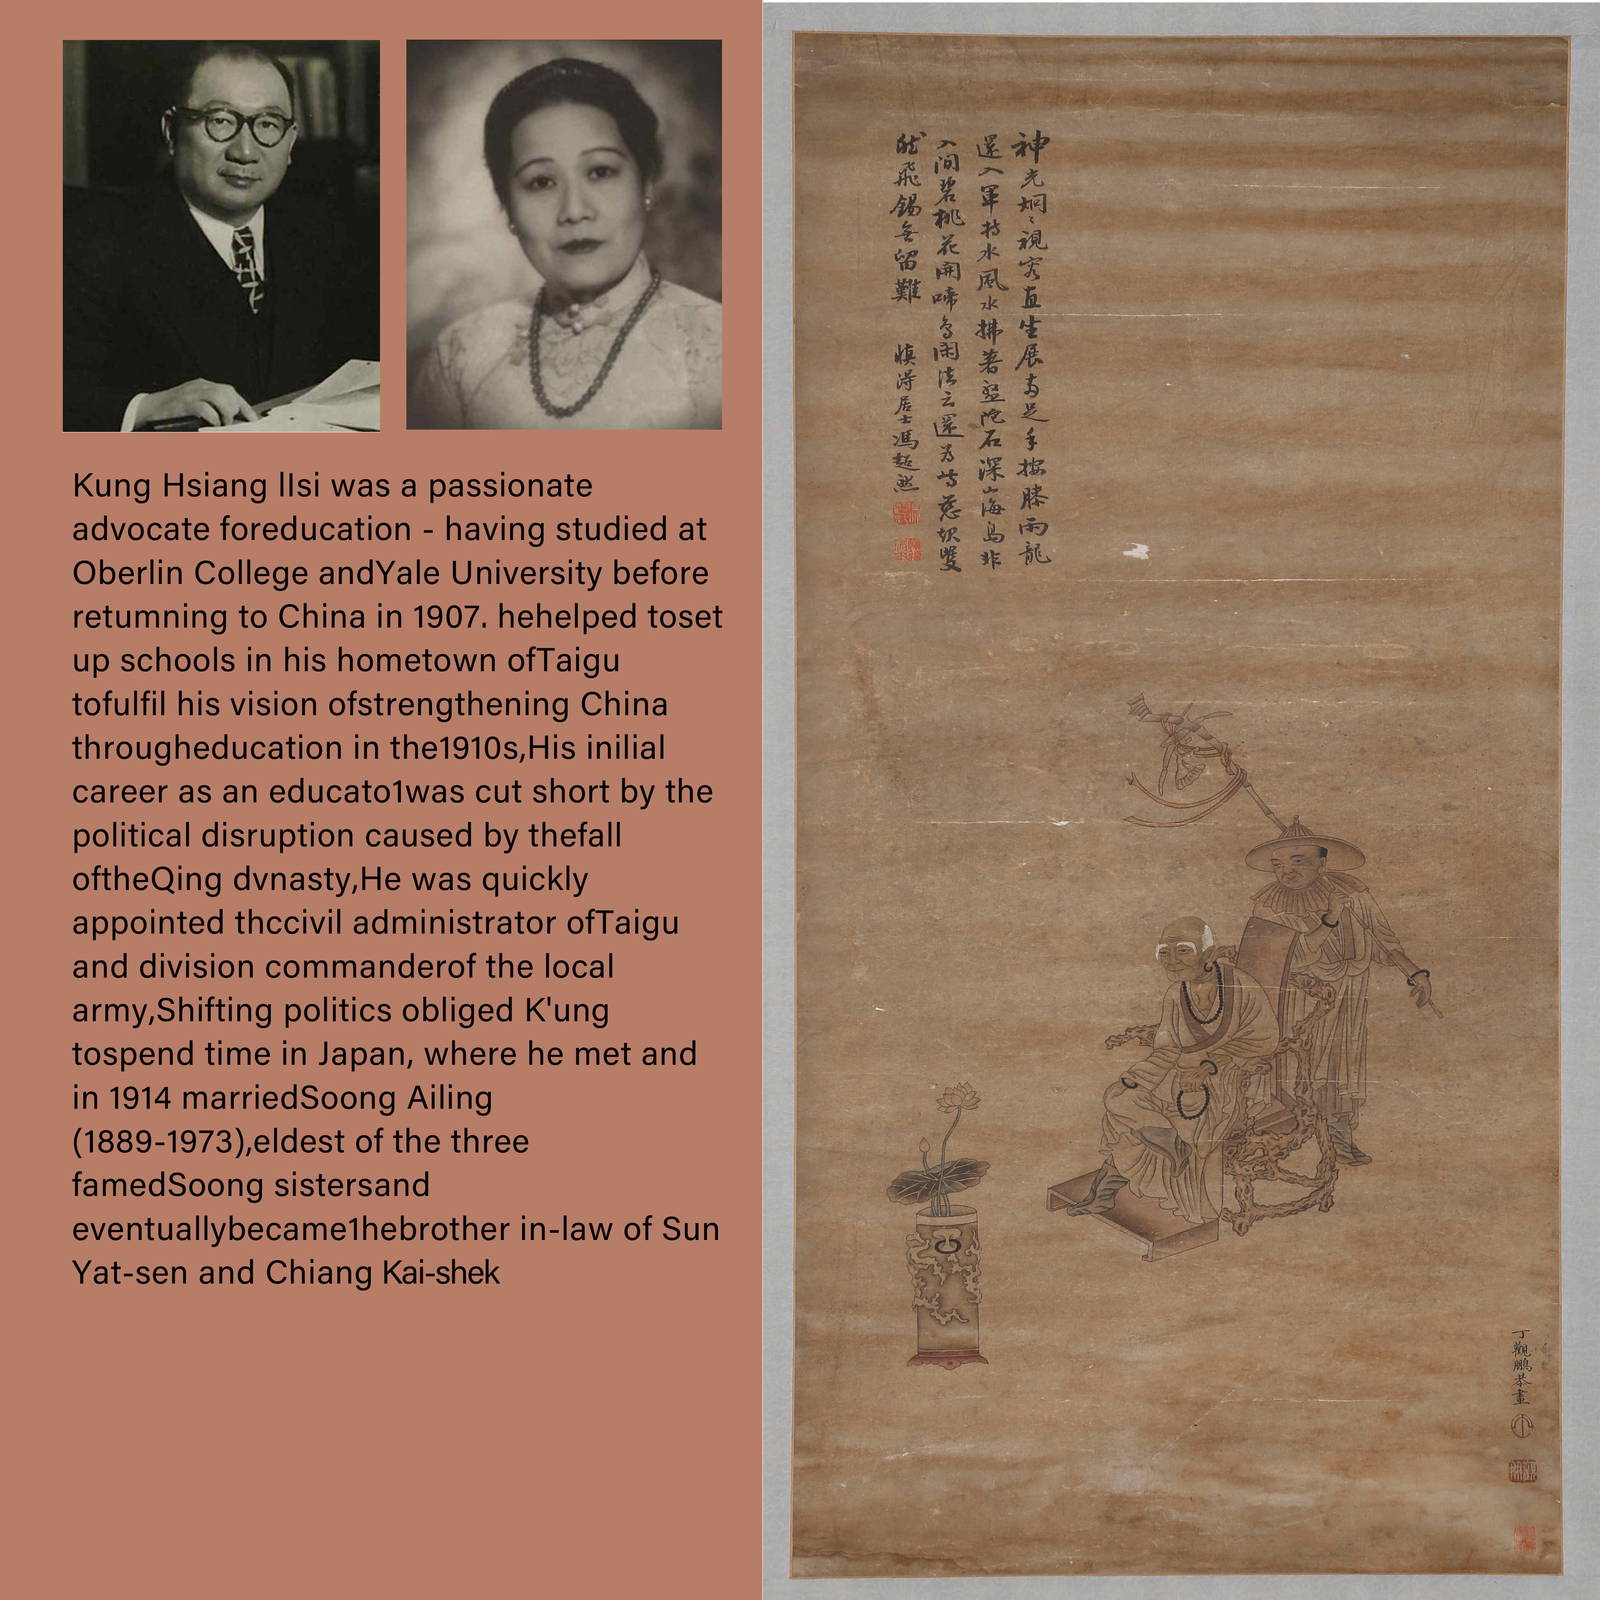 Kung Hsiang llsi was a passionate
advocate foreducation - having studied at
Oberlin College andYale University before
retumning to China in 1907. hehelped toset
up schools in his hometown ofTaigu
tofulfil his vision ofstrengthening China
througheducation in the1910s,His inilial
career as an educato1was cut short by the
political disruption caused by thefall
oftheQing dvnasty,He was quickly
appointed thccivil administrator ofTaigu
and division commanderof the local
army,Shifting politics obliged K'ung
tospend time in Japan, where he met and
in 1914 marriedSoong Ailing
(1889-1973),eldest of the three
famedSoong sistersand
eventuallybecame1hebrother in-law of Sun
Yat-sen and Chiang Kai-shek
神光炯〻視客直生展兩足手按膝雨龍
還入軍持水風水拂著盤陀石深山海島非
人間碧桃花開啼鳥閑法云還為慈
飛錫無留難
慎得居士馮超然
丁觀鵬恭畫